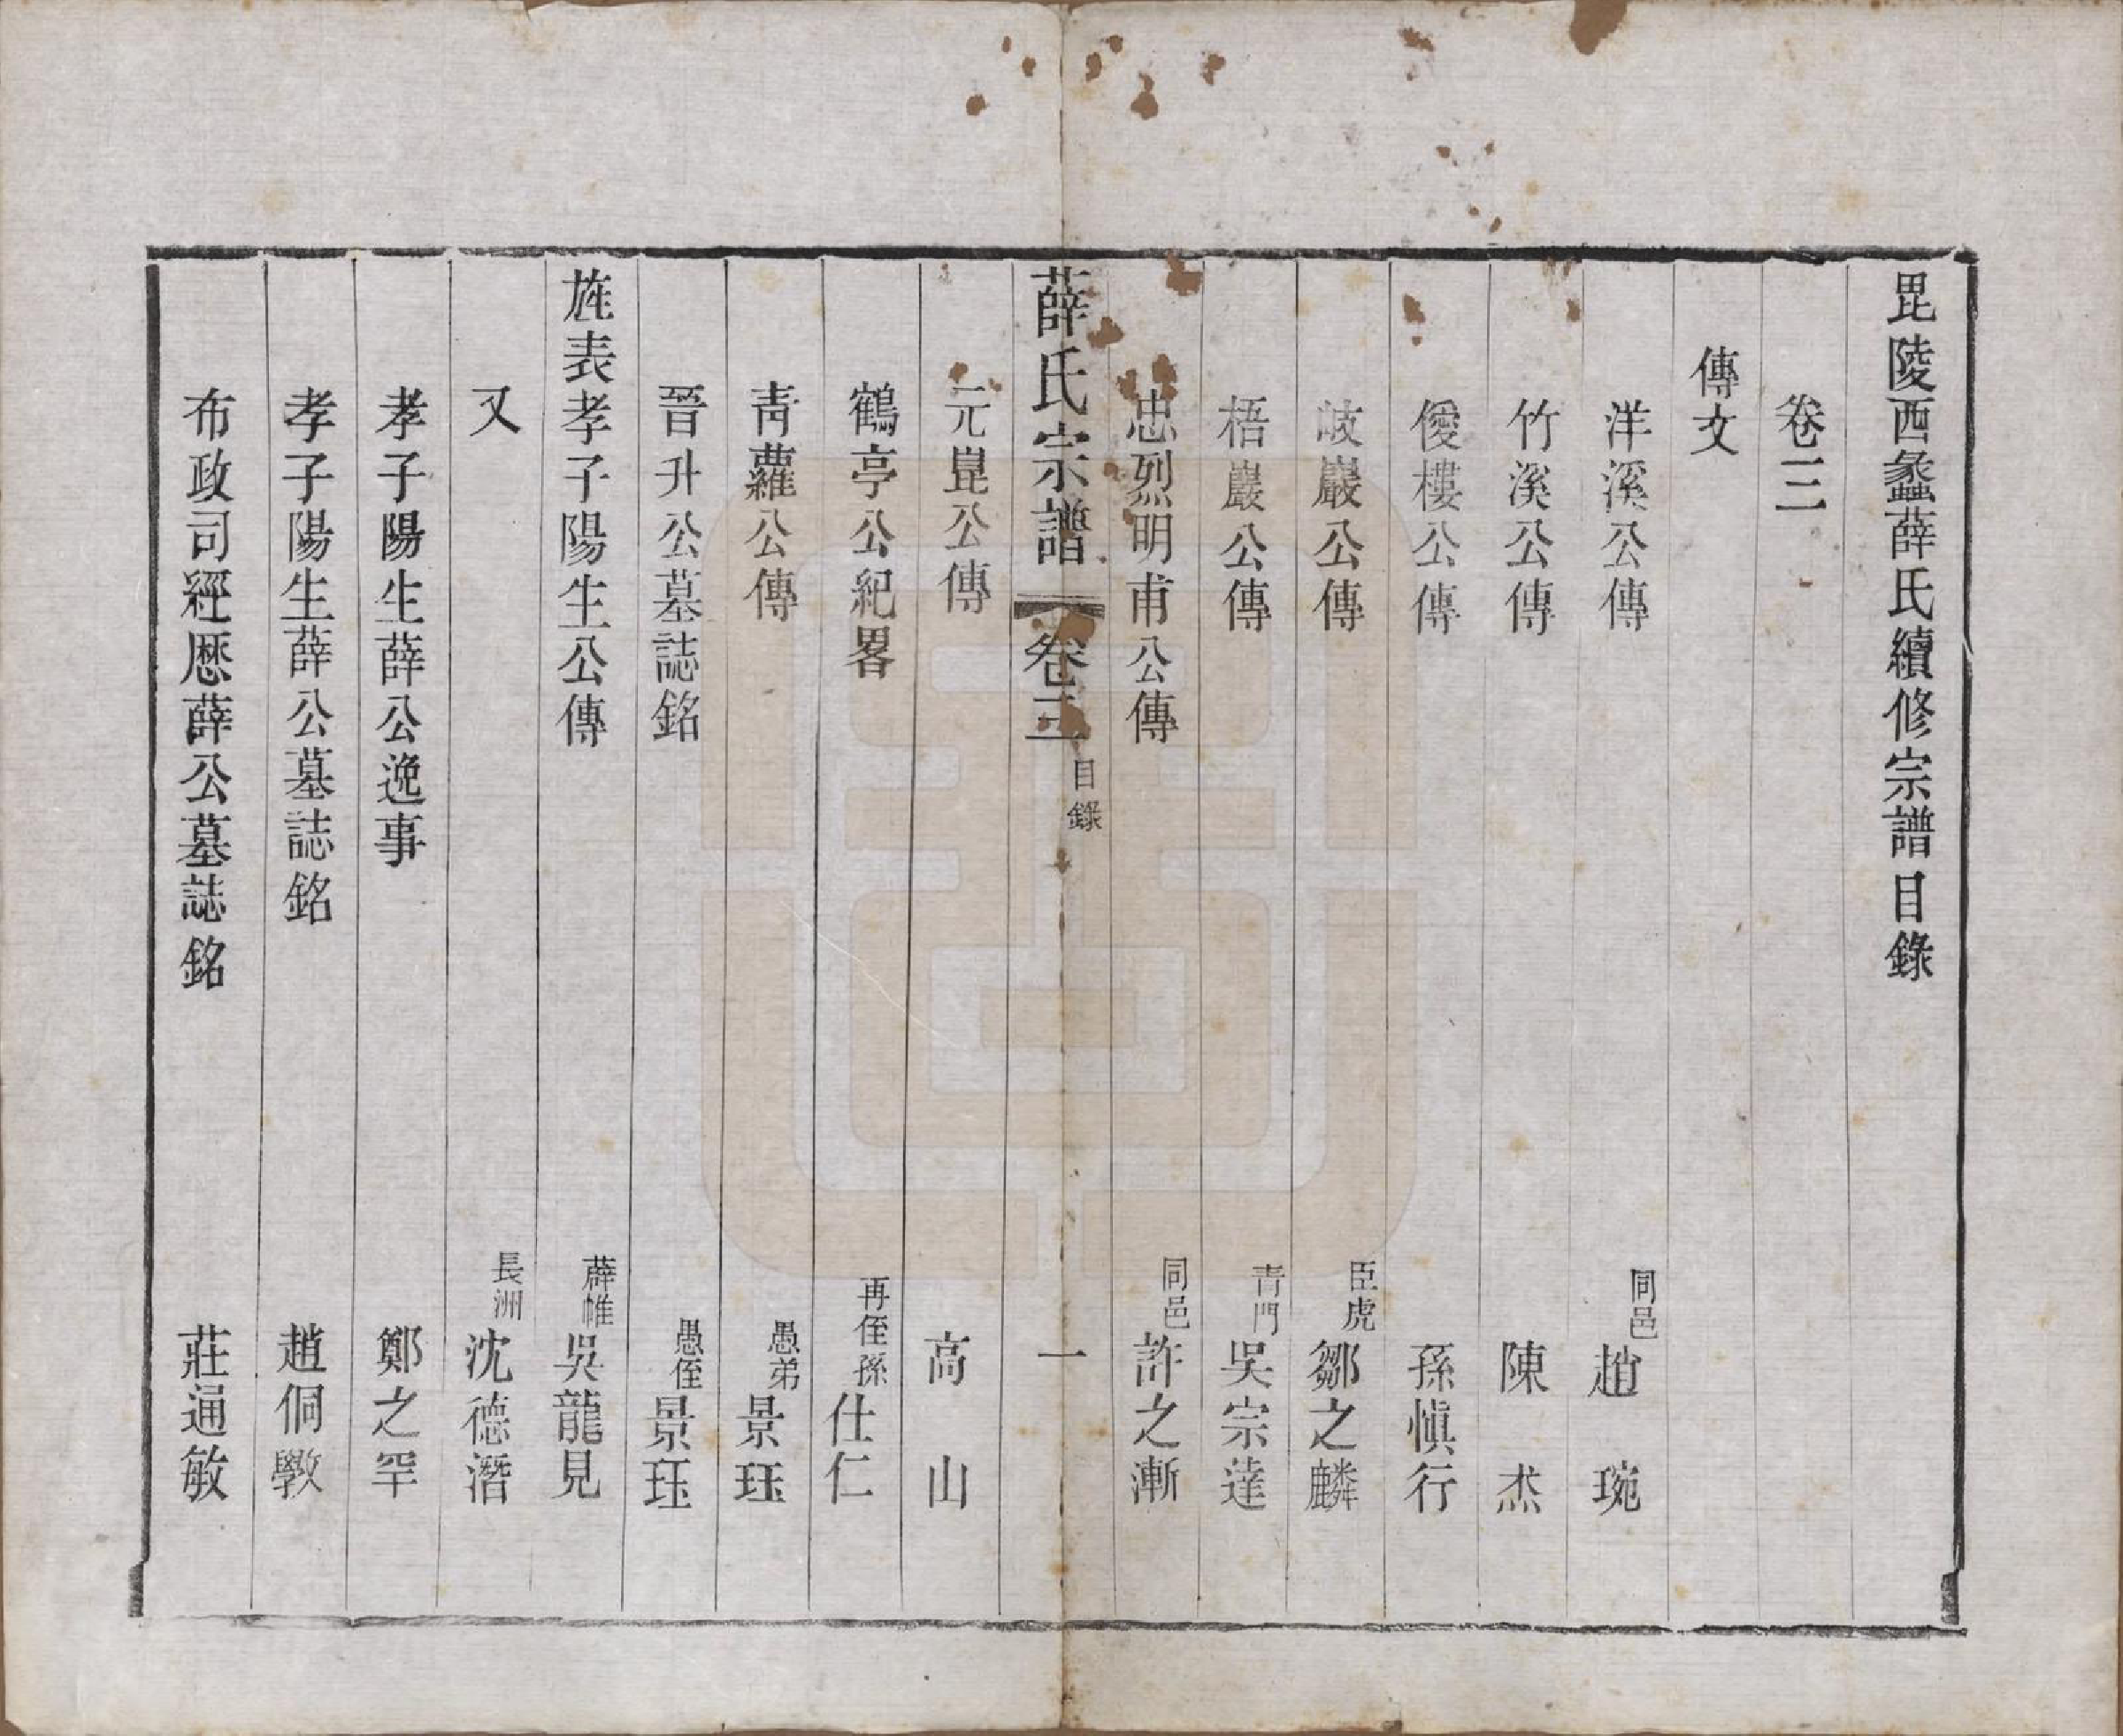 毘陵西蠡薛氏續修宗譜目錄
卷三
傳文
洋溪公傳 同邑 趙琬
竹溪公傳 陳杰
僾樓公傳 孫愼行
岐巖公傳 臣虎 鄒之麟
梧巖公傳 靑門 吳宗達
忠烈明甫公傳 同邑 許之漸
薛氏宗譜 卷三 目錄 一
元崑公傳 高山
鶴亭公紀畧 再侄孫 仕仁
靑蘿公傳 愚弟 景珏
晉升公墓誌銘 愚侄 景珏
旌表孝子陽生公傳 薜帷 吳龍見
又 長洲 沈德潛
孝子陽生薛公逸事 鄭之罕
孝子陽生薛公墓誌銘 趙侗斆
布政司經歷薛公墓誌銘 莊通敏